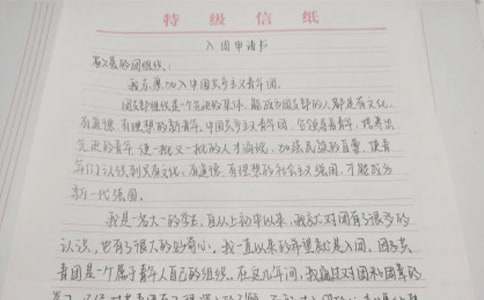 特级信纸
入团申请书
敬爱的团组织:
我志愿加入中国共产主义青年团。
团支部组织是一个先进的集体,能成为团支部的人都是有文化、
有道德、有理想的新青年。中国共产主义青年团,它领导着青年,培养出
先进的青年,使一批又一批的人才涌现,加强民族的自尊,使青
年们认识到只有文化、有道德、有理想的社会主义强国,才能成为
新一代强国。
我是一名大一的学生,自从上初中以来,我就对团有了很多的
认识,也有了很大的好奇心。我一直以来的希望就是入团。团
青团是一个属于青年人自己的组织。在这几年间,我通过对团和团章的